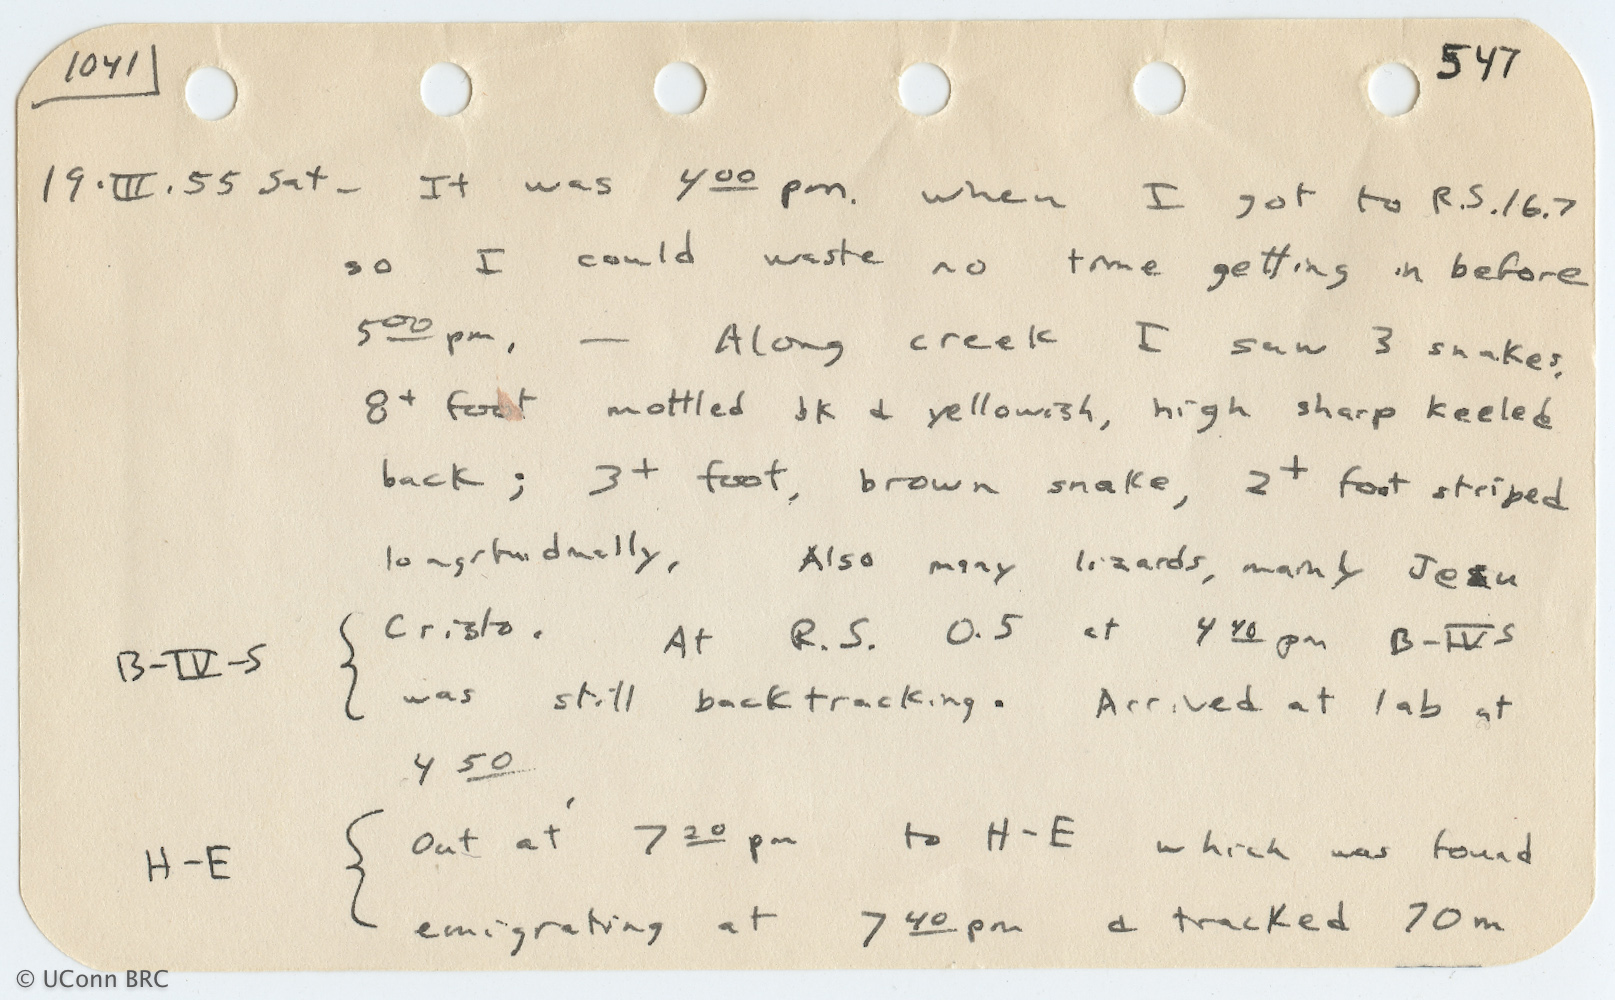 1041
547
19.III.55 Sat- It was 4 00 pm. when I got to R.S.16.7
so I could waste no time getting in before
5 00 pm. — Along creek I saw 3 snakes,
8+ foot mottled bk & yellowish, high sharp keeled
back; 3+ foot, brown snake, 2+ foot striped
longitudinally. Also many lizards, mainly Jesu
Cristo. At R.S. 0.5 at 4 40 pm B-IV S
B-IV-S
was still backtracking. Arrived at lab at
4 50
Out at 7 20 pm to H-E which was found
H-E
emigrating at 7 40 pm & tracked 70 m
© UConn BRC